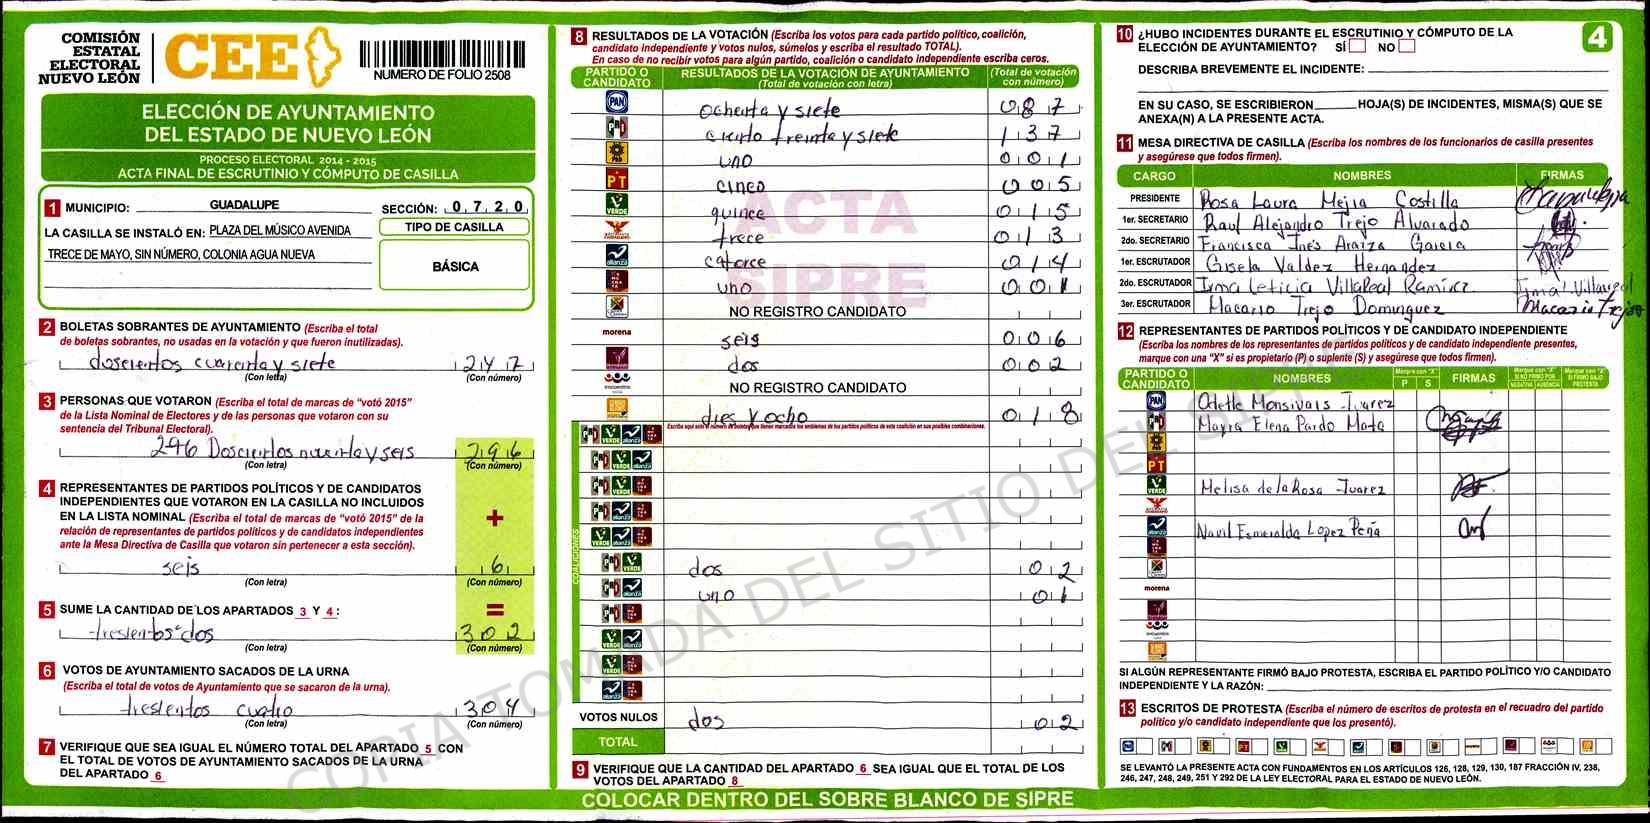 COMISIÓN
ESTATAL
ELECTORAL
NUEVO LEÓN
CEE
NUMERO DE FOLIO 2508
ELECCIÓN DE AYUNTAMIENTO
DEL ESTADO DE NUEVO LEÓN
PROCESO ELECTORAL 2014 - 2015
ACTA FINAL DE ESCRUTINIO Y CÓMPUTO DE CASILLA
1 MUNICIPIO: GUADALUPE SECCIÓN: 0 7 2 0
LA CASILLA SE INSTALÓ EN: PLAZA DEL MÚSICO AVENIDA
TRECE DE MAYO, SIN NÚMERO, COLONIA AGUA NUEVA
TIPO DE CASILLA
BÁSICA
2 BOLETAS SOBRANTES DE AYUNTAMIENTO (Escriba el total
de boletas sobrantes, no usadas en la votación y que fueron inutilizadas).
doscientos cuarenta y siete 247
(Con letra) (Con número)
3 PERSONAS QUE VOTARON (Escriba el total de marcas de "votó 2015"
de la Lista Nominal de Electores y de las personas que votaron con su
sentencia del Tribunal Electoral).
296 Doscientos noventa y seis 296
(Con letra) (Con número)
4 REPRESENTANTES DE PARTIDOS POLÍTICOS Y DE CANDIDATOS
INDEPENDIENTES QUE VOTARON EN LA CASILLA NO INCLUIDOS
EN LA LISTA NOMINAL (Escriba el total de marcas de "votó 2015" de la
relación de representantes de partidos políticos y de candidatos independientes
ante la Mesa Directiva de Casilla que votaron sin pertenecer a esta sección).
+
seis 6
(Con letra) (Con número)
5 SUME LA CANTIDAD DE LOS APARTADOS 3 Y 4: =
tresientos dos 302
(Con letra) (Con número)
6 VOTOS DE AYUNTAMIENTO SACADOS DE LA URNA
(Escriba el total de votos de Ayuntamiento que se sacaron de la urna).
tresientos cuatro 304
(Con letra) (Con número)
7 VERIFIQUE QUE SEA IGUAL EL NÚMERO TOTAL DEL APARTADO 5 CON
EL TOTAL DE VOTOS DE AYUNTAMIENTO SACADOS DE LA URNA
DEL APARTADO 6
8 RESULTADOS DE LA VOTACIÓN (Escriba los votos para cada partido político, coalición,
candidato independiente y votos nulos, súmelos y escriba el resultado TOTAL).
En caso de no recibir votos para algún partido, coalición o candidato independiente escriba ceros.
PARTIDO O CANDIDATO RESULTADOS DE LA VOTACIÓN DE AYUNTAMIENTO (Total de votación con letra) (Total de votación con número)
PAN ochenta y siete 087
PRI ciento treinta y siete 137
PRD uno 001
PT cinco 005
VERDE quince 015
trece 013
alianza catorce 014
uno 001
NO REGISTRO CANDIDATO
morena seis 006
dos 002
NO REGISTRO CANDIDATO
dies y ocho 018
COALICIONES
PRI VERDE dos 02
PRI alianza uno 01
VOTOS NULOS dos 02
TOTAL
ACTA
SIPRE
9 VERIFIQUE QUE LA CANTIDAD DEL APARTADO 6 SEA IGUAL QUE EL TOTAL DE LOS
VOTOS DEL APARTADO 8
COLOCAR DENTRO DEL SOBRE BLANCO DE SIPRE
4
10 ¿HUBO INCIDENTES DURANTE EL ESCRUTINIO Y CÓMPUTO DE LA
ELECCIÓN DE AYUNTAMIENTO? SÍ NO
DESCRIBA BREVEMENTE EL INCIDENTE:
EN SU CASO, SE ESCRIBIERON HOJA(S) DE INCIDENTES, MISMA(S) QUE SE
ANEXA(N) A LA PRESENTE ACTA.
11 MESA DIRECTIVA DE CASILLA (Escriba los nombres de los funcionarios de casilla presentes
y asegúrese que todos firmen).
CARGO NOMBRES FIRMAS
PRESIDENTE Rosa Laura Mejia Costilla
1er. SECRETARIO Raul Alejandro Trejo Alvarado
2do. SECRETARIO Francisca Inés Araiza Garcia
1er. ESCRUTADOR Gisela Valdez Hernandez
2do. ESCRUTADOR Irma Leticia Villareal Ramirez Irma Villareal
3er. ESCRUTADOR Macario Trejo Dominguez Macario Trejo
12 REPRESENTANTES DE PARTIDOS POLÍTICOS Y DE CANDIDATO INDEPENDIENTE
(Escriba los nombres de los representantes de partidos políticos y de candidato independiente presentes,
marque con una "X" si es propietario (P) o suplente (S) y asegúrese que todos firmen).
PARTIDO O CANDIDATO NOMBRES Marque con "X" P S FIRMAS
PAN Odette Monsivais Juarez
PRI Mayra Elena Pardo Mata
PRD
PT
VERDE Melisa de la Rosa Juarez
alianza Navil Esmeralda Lopez Peña
morena
SI ALGÚN REPRESENTANTE FIRMÓ BAJO PROTESTA, ESCRIBA EL PARTIDO POLÍTICO Y/O CANDIDATO
INDEPENDIENTE Y LA RAZÓN:
13 ESCRITOS DE PROTESTA (Escriba el número de escritos de protesta en el recuadro del partido
político y/o candidato independiente que los presentó).
SE LEVANTÓ LA PRESENTE ACTA CON FUNDAMENTOS EN LOS ARTÍCULOS 126, 128, 129, 130, 187 FRACCIÓN IV, 238,
246, 247, 248, 249, 251 Y 292 DE LA LEY ELECTORAL PARA EL ESTADO DE NUEVO LEÓN.
COPIA TOMADA DEL SITIO DEL